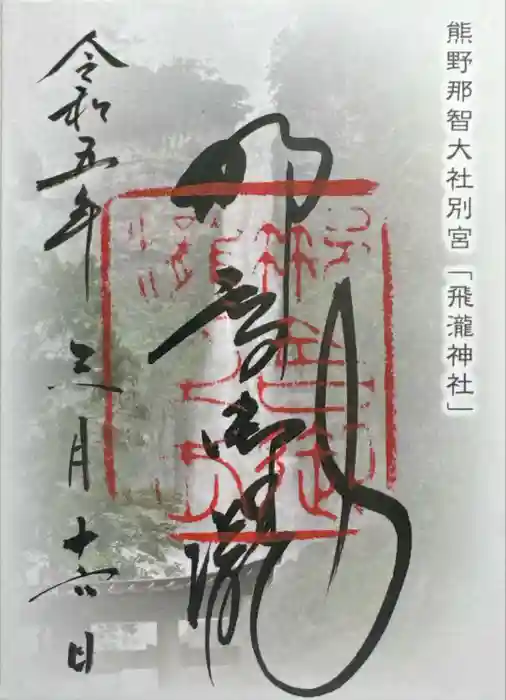 熊野那智大社別宮「飛瀧神社」
那智御瀧
令和五年 三月十六日